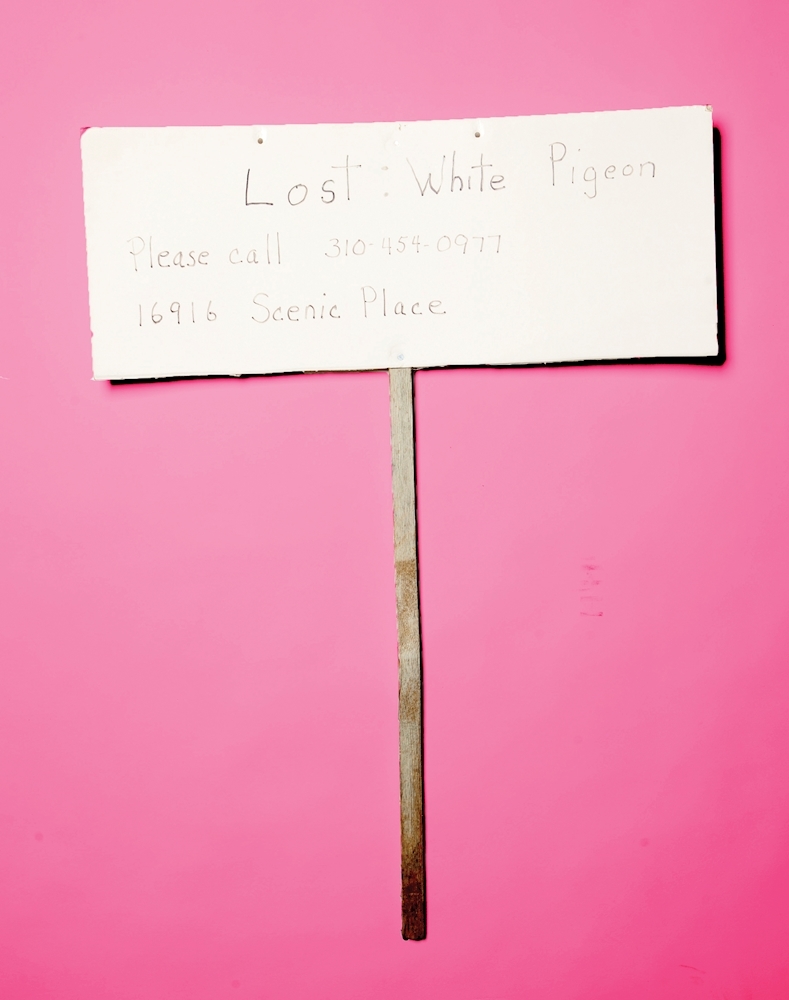 Lost: White Pigeon
Please call 310-454-0977
16916 Scenic Place